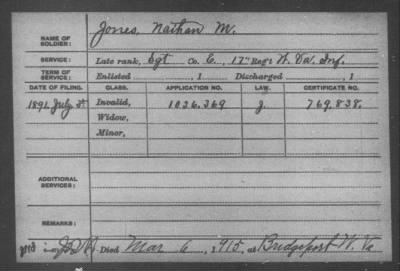 NAME OF SOLDIER: Jones, Nathan M.
SERVICE: Late rank, Sgt Co. E, 17" Reg't W. Va. Inf.
TERM OF SERVICE: Enlisted , 1 Discharged , 1
DATE OF FILING. CLASS. APPLICATION NO. LAW. CERTIFICATE NO.
1891 July 3 Invalid, 1036.369 J. 769,838.
Widow,
Minor,
ADDITIONAL SERVICES:
REMARKS:
Died Mar 6, 1915, at Bridgeport W. Va